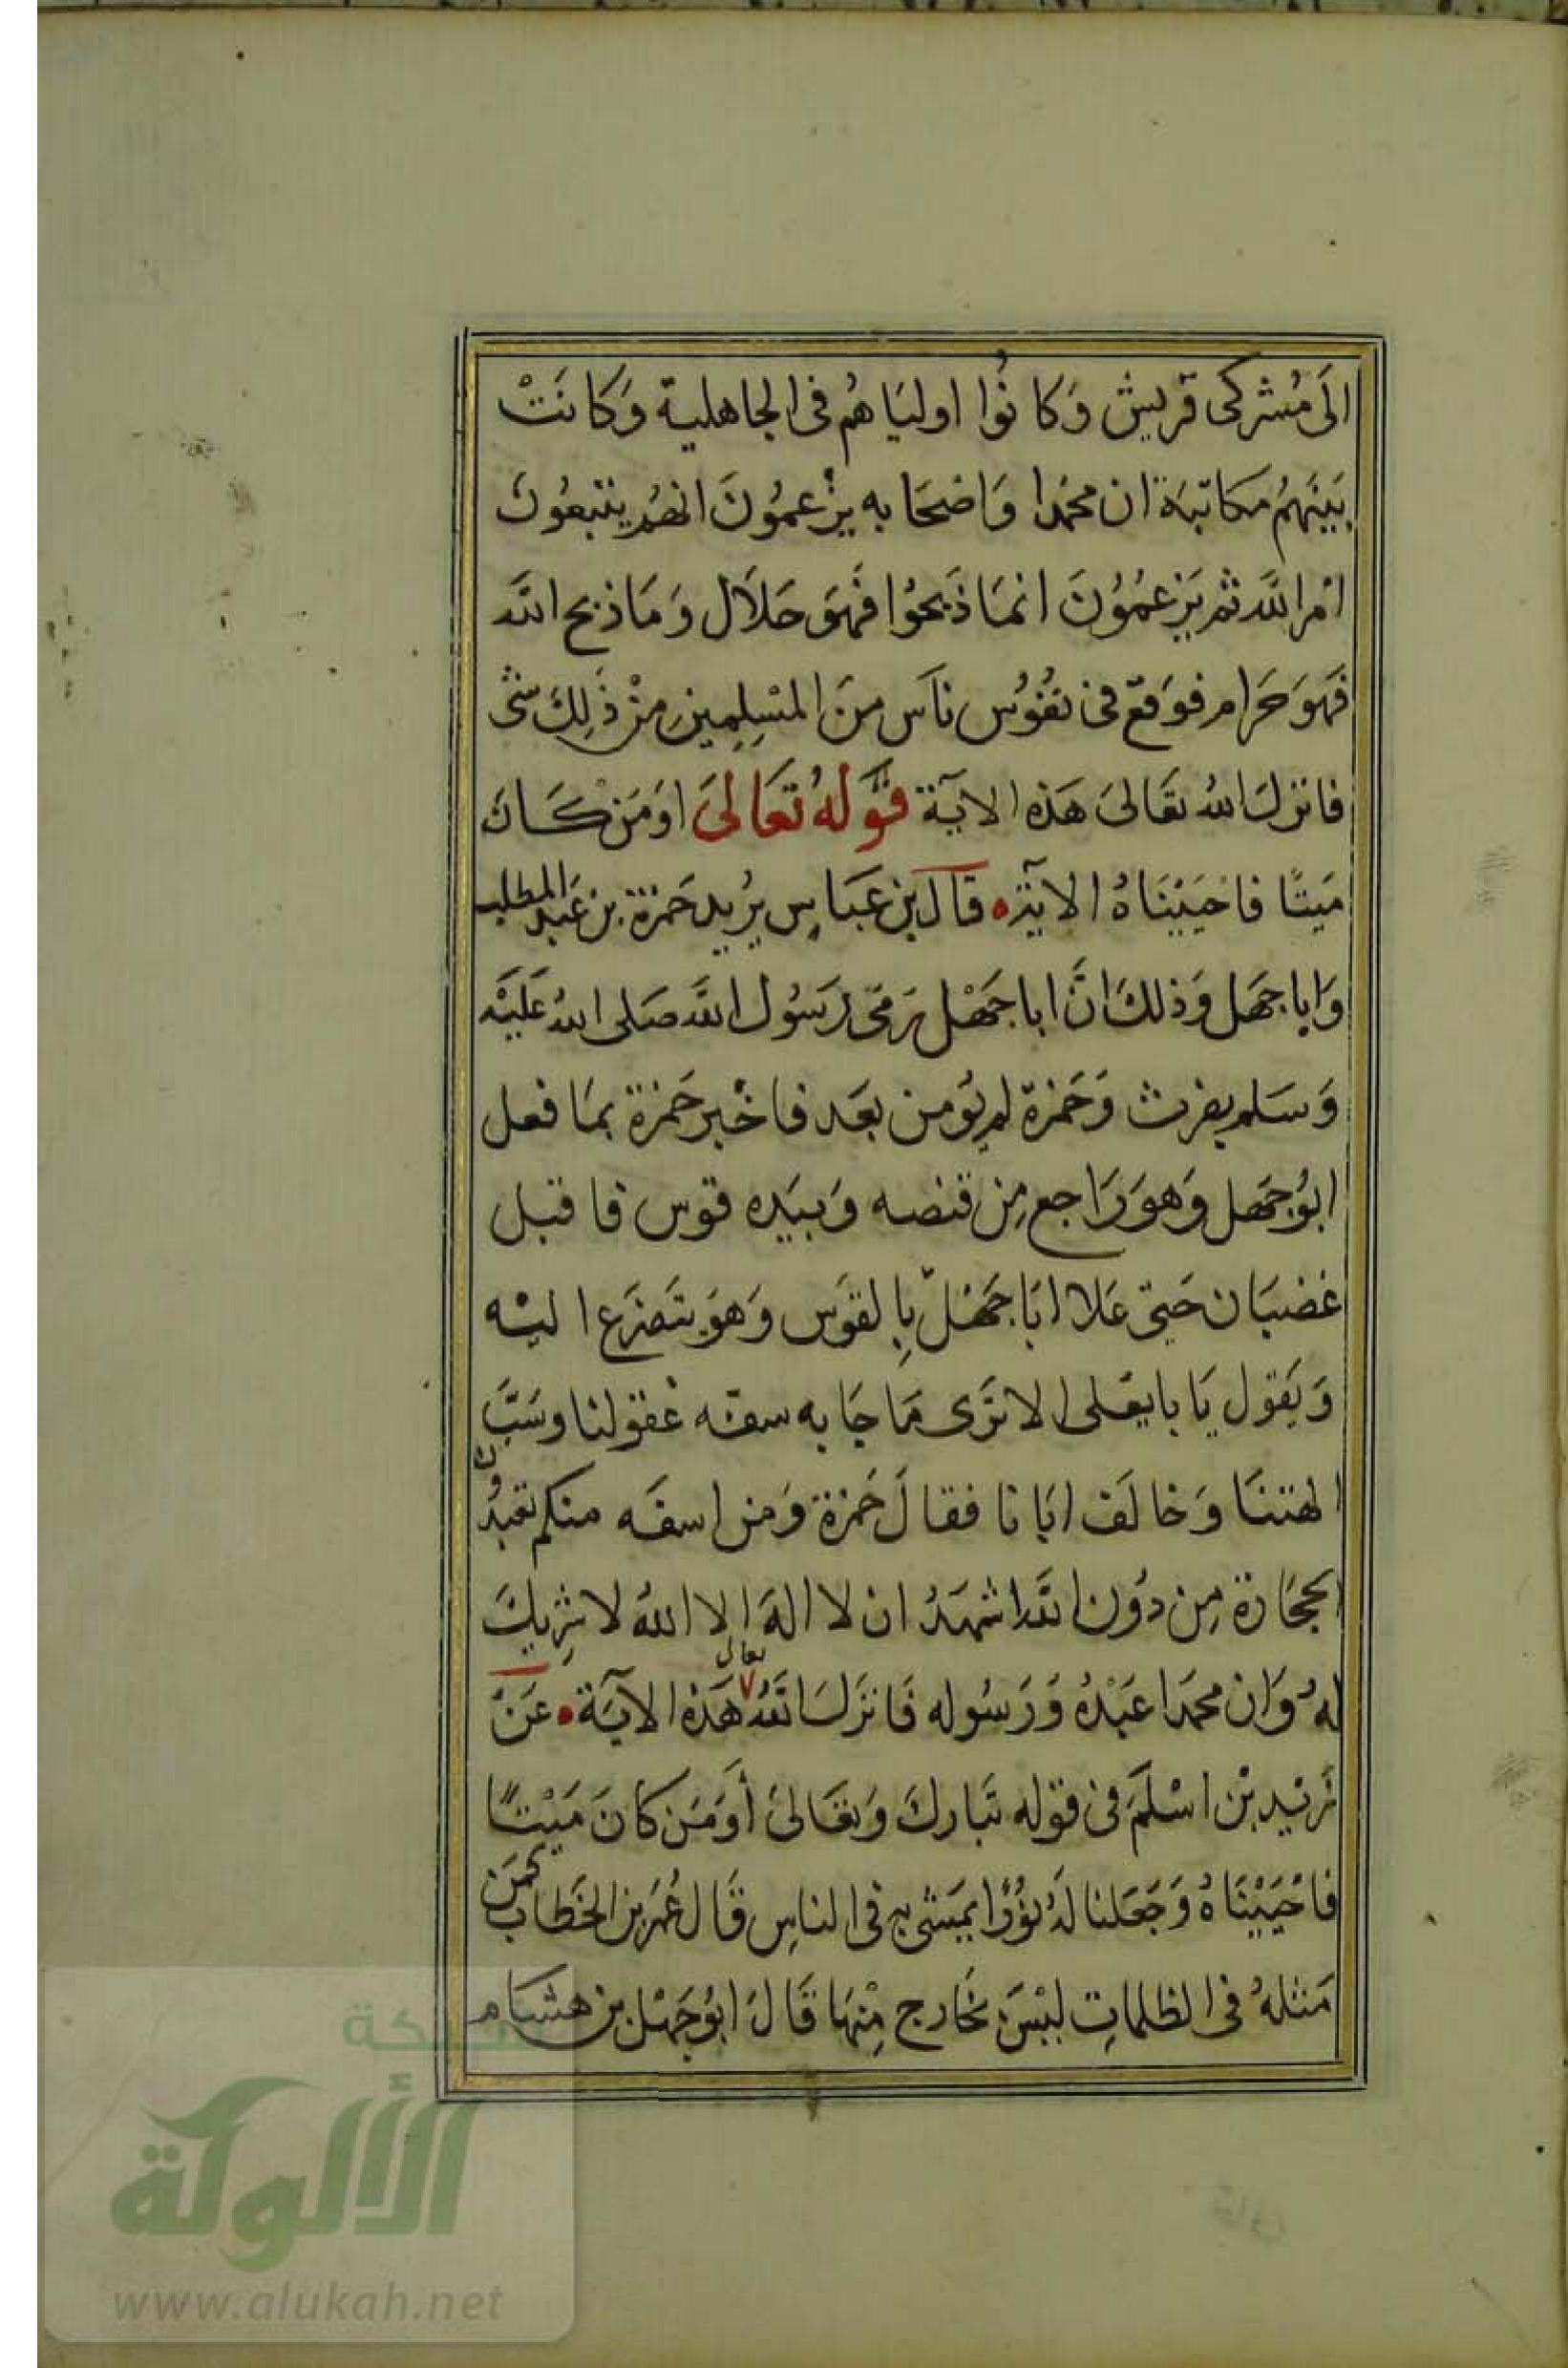 الَى مُشركى قريش وَكانُوا اوليَاهُم فى الجاهلية وَكانَتْ
بَيَنهُم مكاتبَة ان محمَدا وَاضحَابه يزْعمُونَ انهُم يتبعُونَ
امْرالله ثم يَزعمُوُنَ انمَا ذَبحوُا فهَوَ حَلاَل وَمَا ذبح الله
فَهوَ حَرام فوَقع فى نفُوُس نَاس منَ المسْلِمِينِ مِنْ ذَلِكَ شى
فانزلَ الله تعَالىَ هَذه الاية قَوْلهُ تَعَالىَ اوَمَنْ كَانَ
مَيتًا فاحْيَيْنَاهُ الآيَة قالَ بن عَبَاسٍ يرُيد حَمزة بن عَبد المطلب
وَاباجهَل وَذلكَ انَّ اباجَهْل رَمَى رَسُول اللَّه صَلى اللهُ عَلَيْه
وَسَلم بفرث وَحَمزة لم يوُمن بعَد فاخْبر حَمزة بمَا فعل
ابوُجَهل وَهوَرَاجع مِن قنصه وَبيَده قوس فاقبل
غضبَان حَتى عَلا ابَاجَهْل بِالقوَس وَهوَ يتَضرَع اليْه
وَيَقول يَا بايعَلى الا ترَى مَا جَا به سفه عُقولنا وسَبَّ
الهتنَا وَخالَف ابَانا فقالَ حَمزة وَمن اسفَه منكم تعبدُون
الحجَارة مِن دُون اللَّه اشهَدُ ان لا الهَ الا اللهُ لا شِريكَ
لهُ وَان محمَدا عَبْدُه وَرَسُوله فَانزَلَ اللهُ تعالى هَذه الآيَة عَنْ
زَيْد بْن اسْلَمَ فى قوله تَبارك وَتعَالىَ أوَمَن كانَ مَيْتًا
فاحْيَيْنَاهُ وَجَعَلنا لَهُ نوُرًا يمَشى بهِ فى الناسِ قَال عُمَر بن الخَطاب كَمَن
مَثلهُ فى الظلماتِ ليْسَ بخَارج مِنْهَا قَالَ ابوُجَهْل بن هشَام
شبكة
الألوكة
www.alukah.net